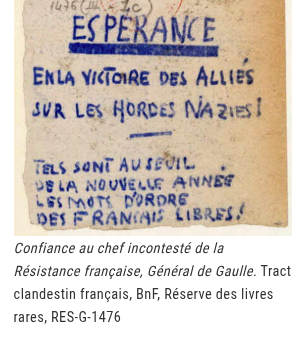 1476(II-Ic)
ESPÉRANCE
EN LA VICTOIRE DES ALLIÉS
SUR LES HORDES NAZIES!
TELS SONT AU SEUIL
DE LA NOUVELLE ANNEE
LES MOTS D'ORDRE
DES FRANÇAIS LIBRES!
Confiance au chef incontesté de la
Résistance française, Général de Gaulle. Tract
clandestin français, BnF, Réserve des livres
rares, RES-G-1476